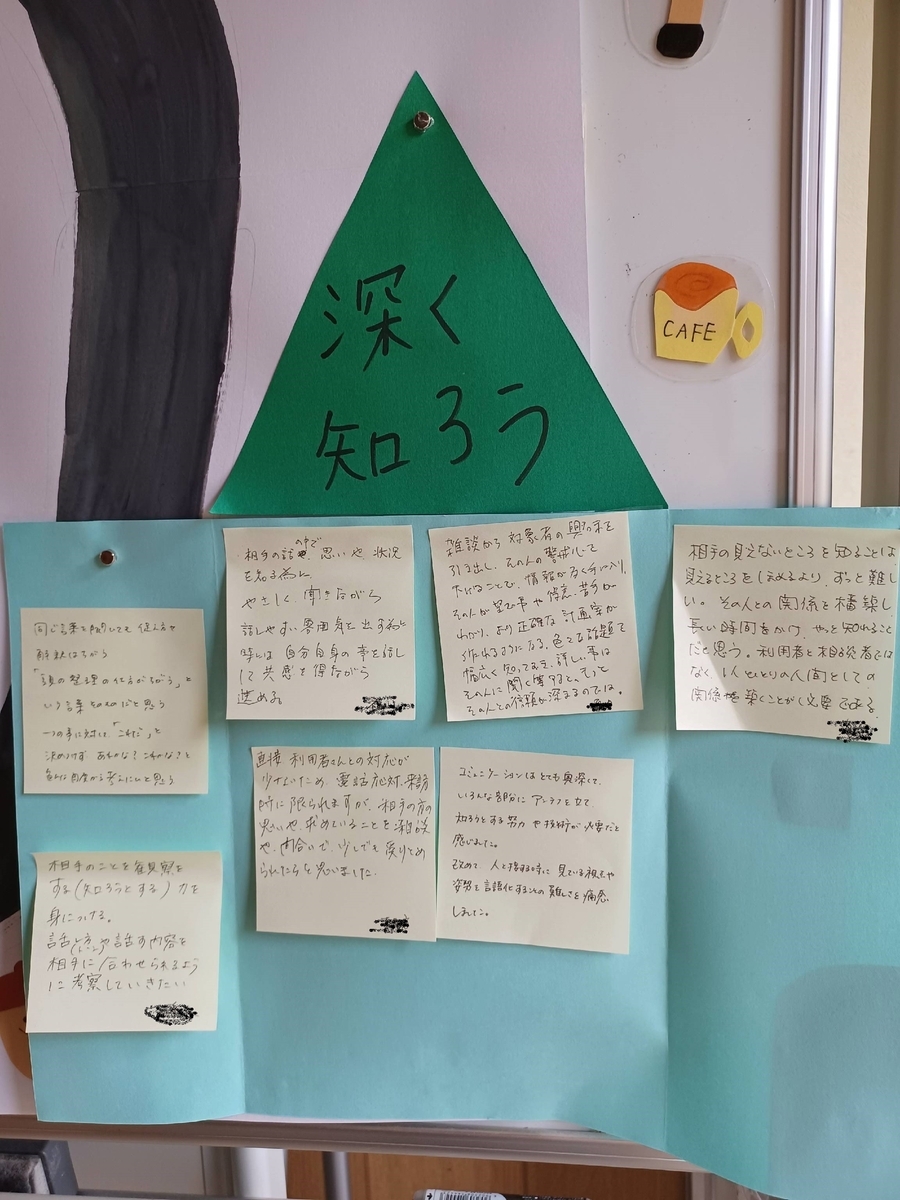 深く
知ろう
CAFE
相手の話の中で 思いや 状況
を知る為に
やさしく 聞きながら
話しやすい雰囲気を出す為に
時には 自分自身の事を話し
て 共感を得ながら
進める
雑談から 対象者の興味を
引き出し、その人の警戒心を
下げることで、情報が多く手に入り、
その人が 事や 得意、苦手が
わかり、より正確な 計画案が
作れるようになる。色々な話題を
幅広く知っておき、詳しい事は
その人に聞く等すると、もっと
その人との信頼が深まるのでは。
相手の見えないところを知ることは
見えるところを ほめるより、ずっと難し
い。その人との関係を構築し
長い時間をかけ、やっと知れること
だと思う。利用者と相談者では
なく、1人ひとりの人間としての
関係を築くことが必要である。
同じ言葉を 聞いても 捉え方や
解釈はちがう
「頭の整理の仕方がちがう」と
いう言葉 そのものだと思う
一つの事に対して、「これだ」と
決めつけず あれかな?これかな?と
思う
直接 利用者さんとの対応が
少ないため、電話応対、来訪
時に限られますが、相手の方の
思いや、求めていることを雑談
や、間合いで、少しでも 受けとめ
られたらと思いました。
コミュニケーションはとても奥深くて、
いろんな部分に アンテナを立て、
知ろうとする努力 や 技術が 必要だと
感じました。
改めて 人と接する時に 見ている視点や
姿勢を言語化することの難しさを 痛感
しました。
相手のことを観察を
する(知ろうとする) 力を
身につける。
話し方や話す内容を
相手に合わせられるよう
に考察していきたい